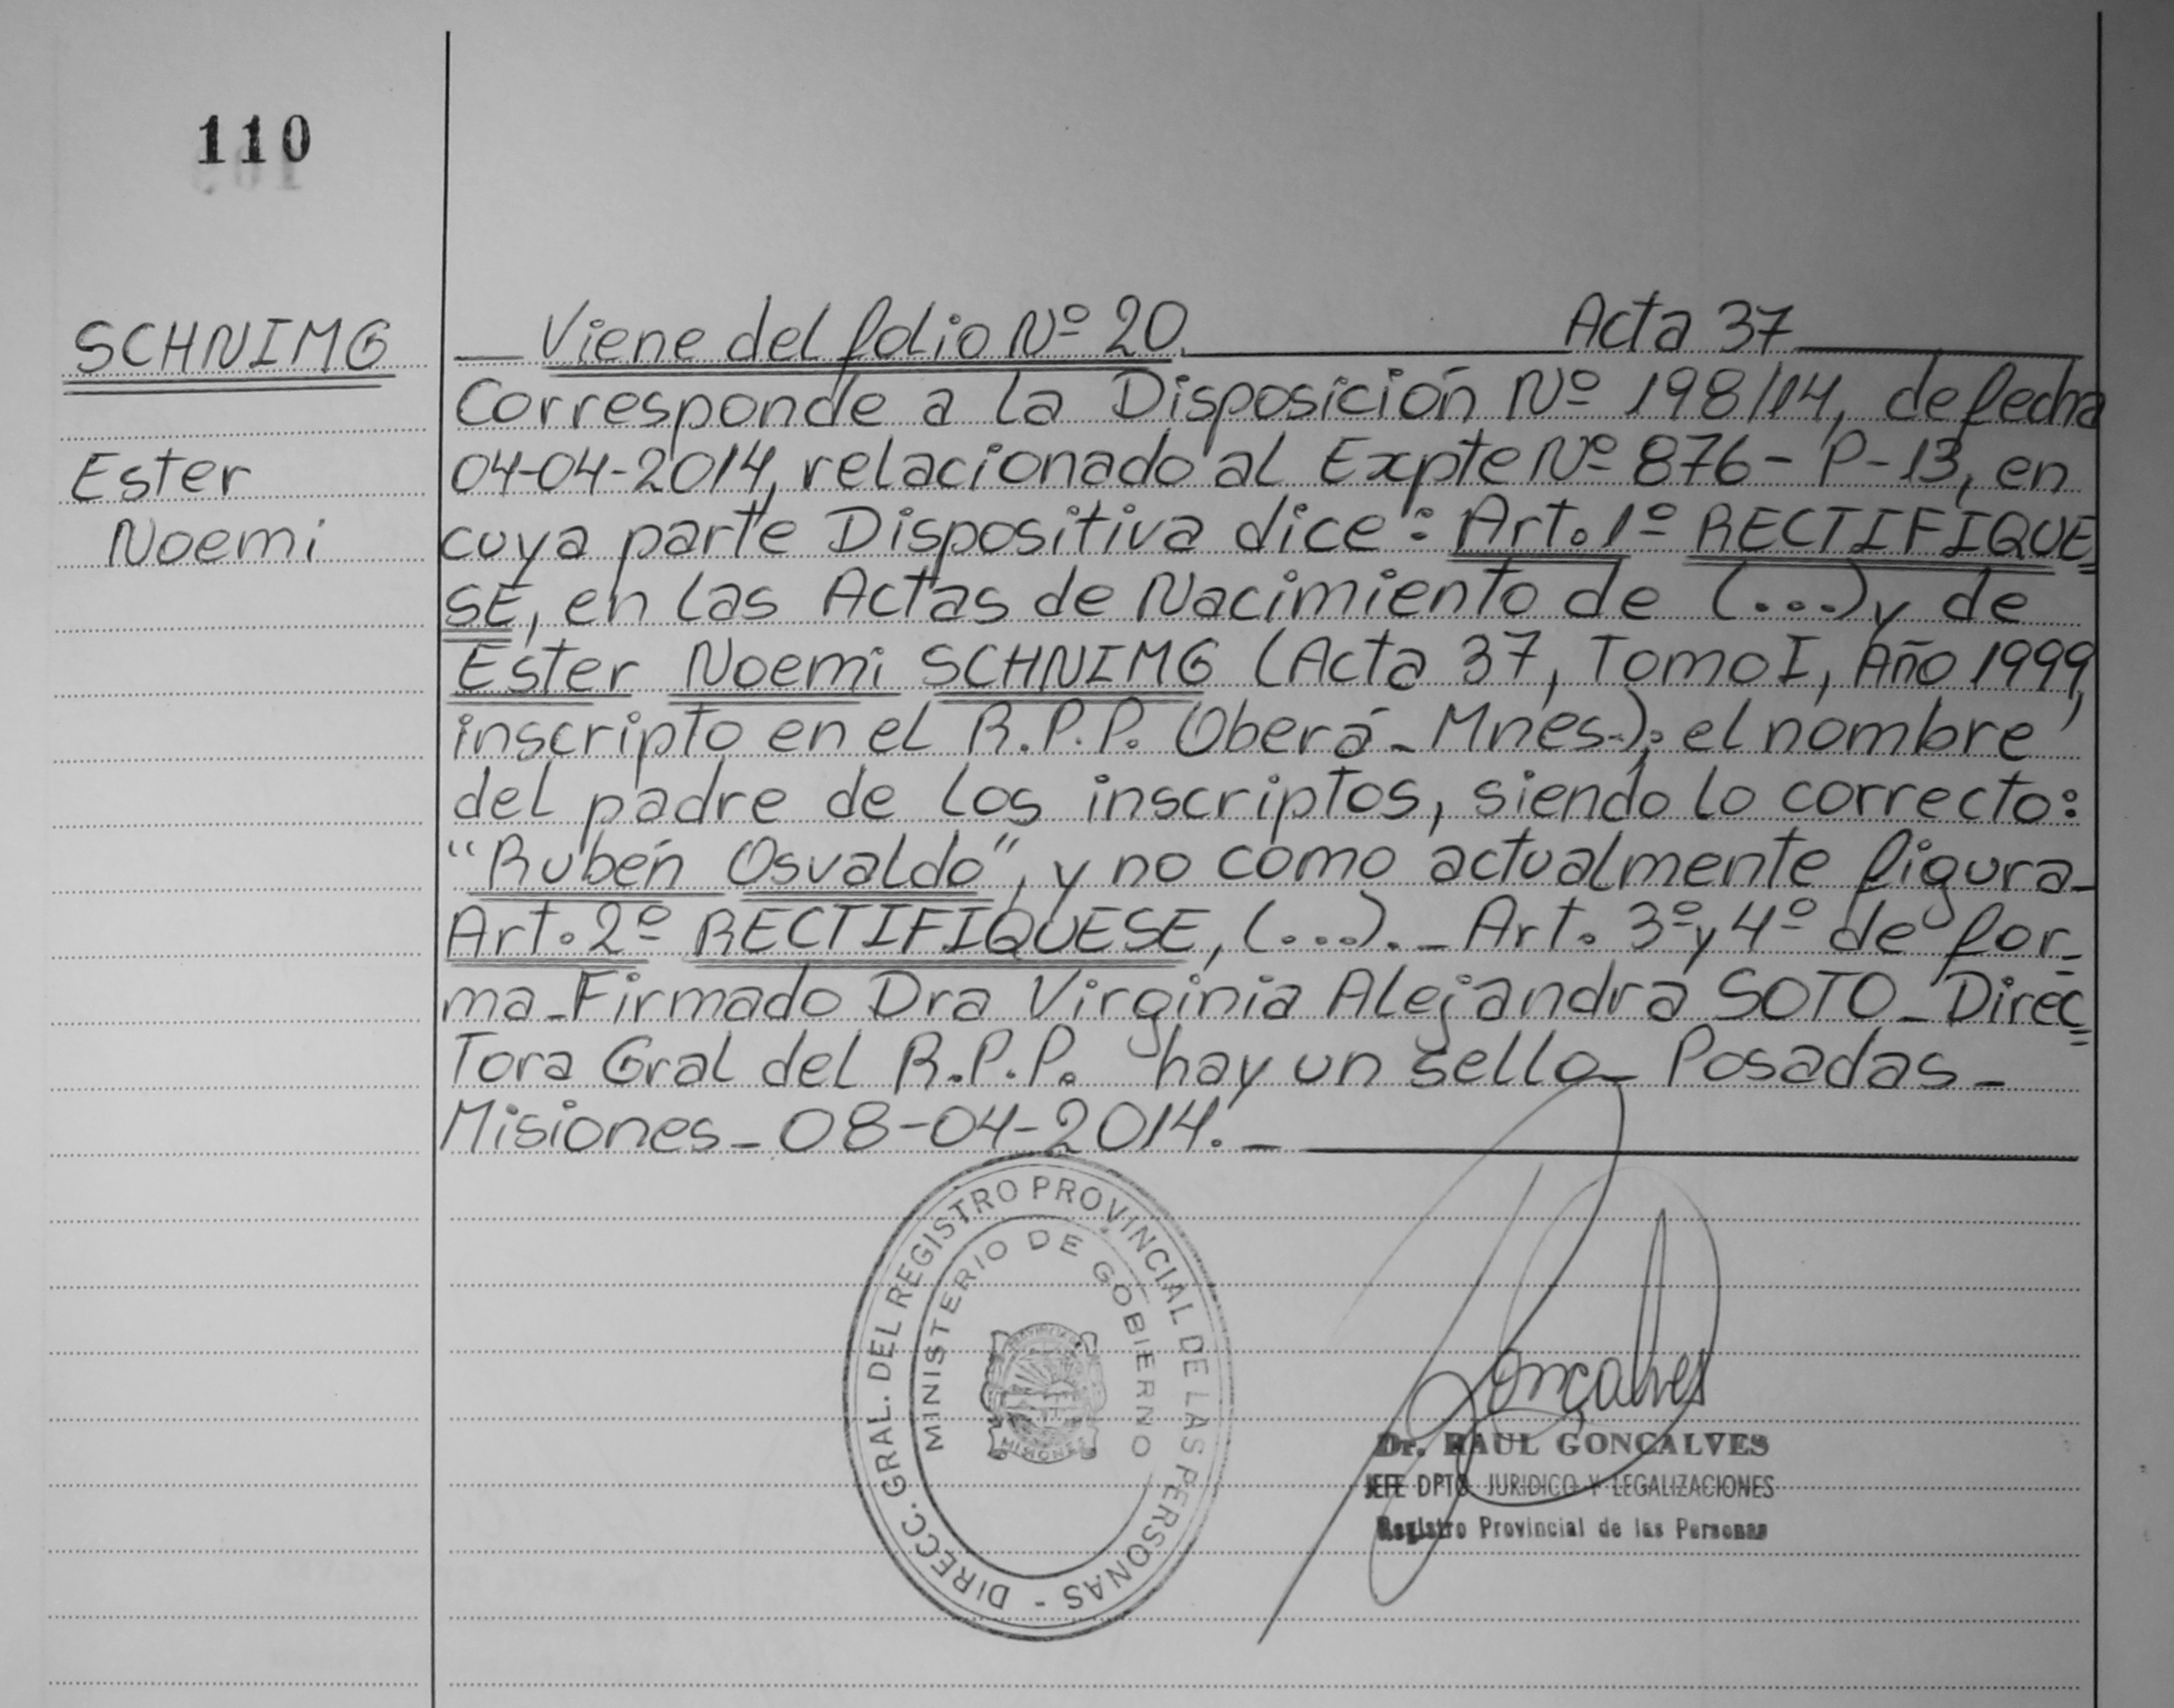 110
SCHNIMG
Ester
Noemi
Viene del folio Nº 20. Acta 37
Corresponde a la Disposición Nº 198/14, de fecha
04-04-2014, relacionado al Expte Nº 876-P-13, en
cuya parte Dispositiva dice: Art. 1º RECTIFIQUE=
SE, en las Actas de Nacimiento de (...) y de
Ester Noemi SCHNIMG (Acta 37, Tomo I, Año 1999,
inscripto en el R.P.P. Oberá-Mnes.); el nombre
del padre de los inscriptos, siendo lo correcto:
"Rubén Osvaldo", y no como actualmente figura-
Art. 2º RECTIFIQUESE, (...).- Art. 3º y 4º de for=
ma-Firmado Dra Virginia Alejandra SOTO-Direc=
Tora Gral del R.P.P. hay un sello- Posadas-
Misiones-08-04-2014.-
DIRECC. GRAL. DEL REGISTRO PROVINCIAL DE LAS PERSONAS -
MINISTERIO DE GOBIERNO
PROVINCIA DE
MISIONES
Gonçalves
Dr. RAUL GONÇALVES
JEFE DPTO JURIDICO Y LEGALIZACIONES
Registro Provincial de las Personas